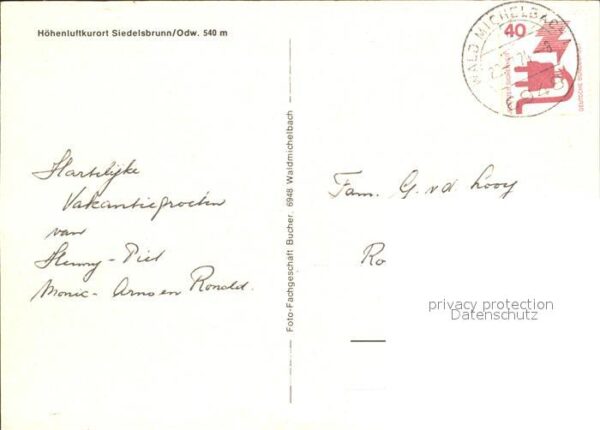 Höhenluftkurort Siedelsbrunn/Odw. 540 m
Hartelijke
Vakantiegroeten
van
Henny - Piet
Monic - Arno en Ronald.
Foto-Fachgeschäft Bucher, 6948 Waldmichelbach
WALD-MICHELBACH
40
DEUTSCHE BUNDESPOST
Fam. G. v.d. Looy
Ro
privacy protection
Datenschutz